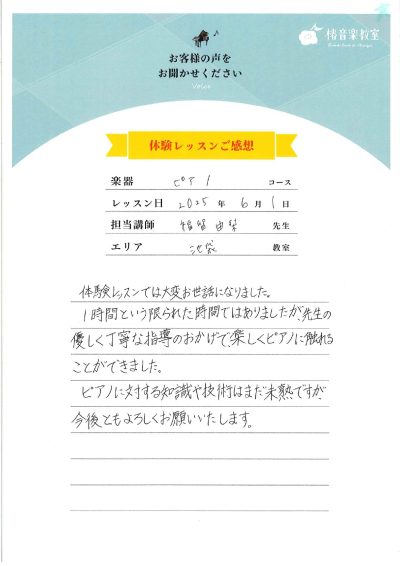 椿音楽教室
お客様の声を
お聞かせください
Voice
体験レッスンご感想
楽器 ピアノ コース
レッスン日 2025 年 6 月 1 日
担当講師 由 先生
エリア 池袋 教室
体験レッスンでは大変お世話になりました。
1時間という限られた時間ではありましたが、先生の
優しく丁寧な指導のおかげで、楽しくピアノに触れる
ことができました。
ピアノに対する知識や技術はまだ未熟ですが、
今後ともよろしくお願いいたします。